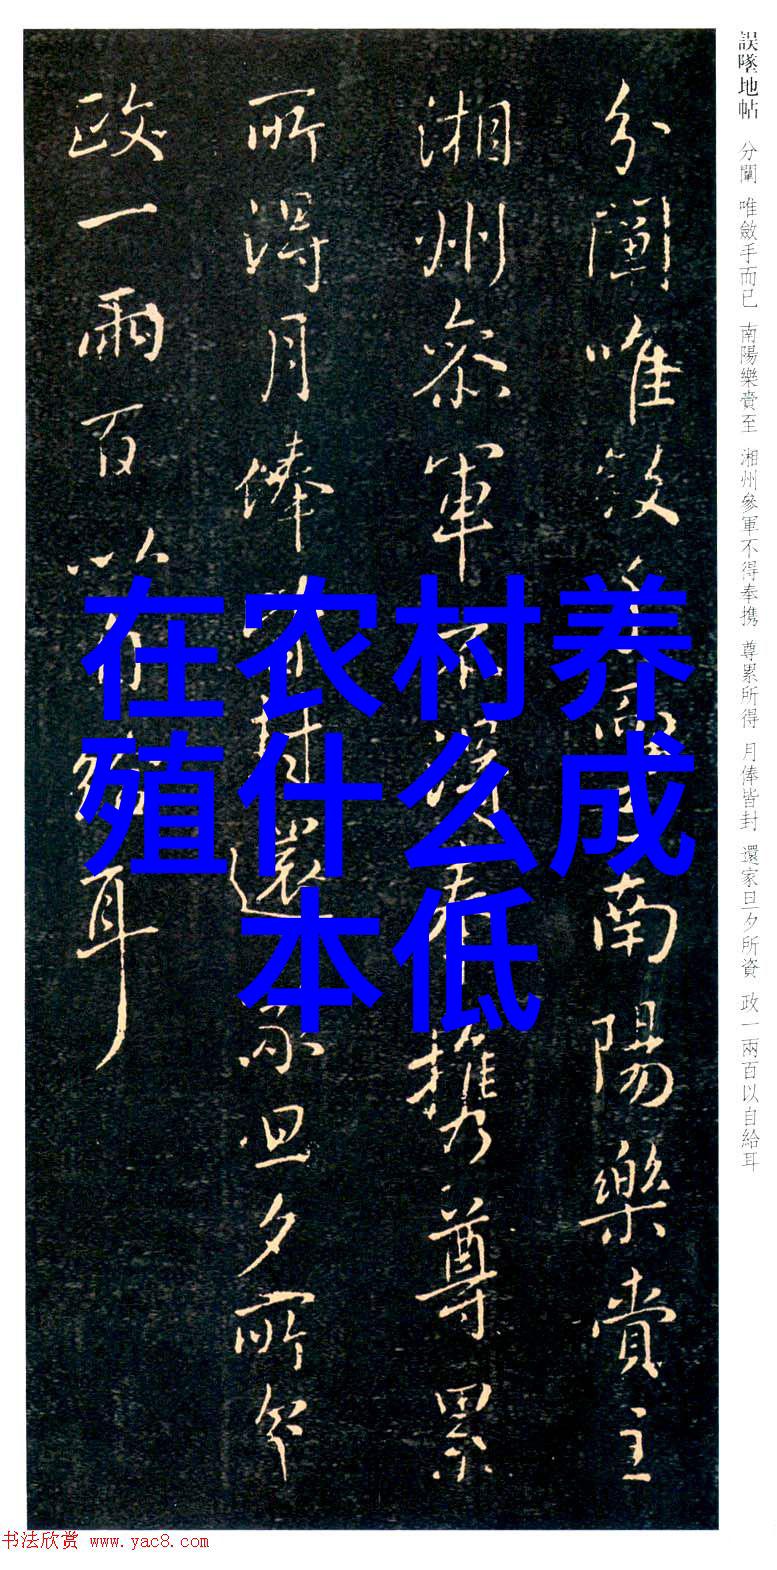 誤墜地帖 分闡 唯斂手而已 南陽樂賚至 湘州參軍不得奉携 尊累所得 月俸皆封 還家旦夕所資 政一兩百以自給耳
分闡唯斂手而已南陽樂賚至
湘州參軍不得奉携尊累
所得月俸皆封還家旦夕所資
政一兩百以自給耳
在农村养
殖什么成
本低
书法欣赏 www.yac8.com